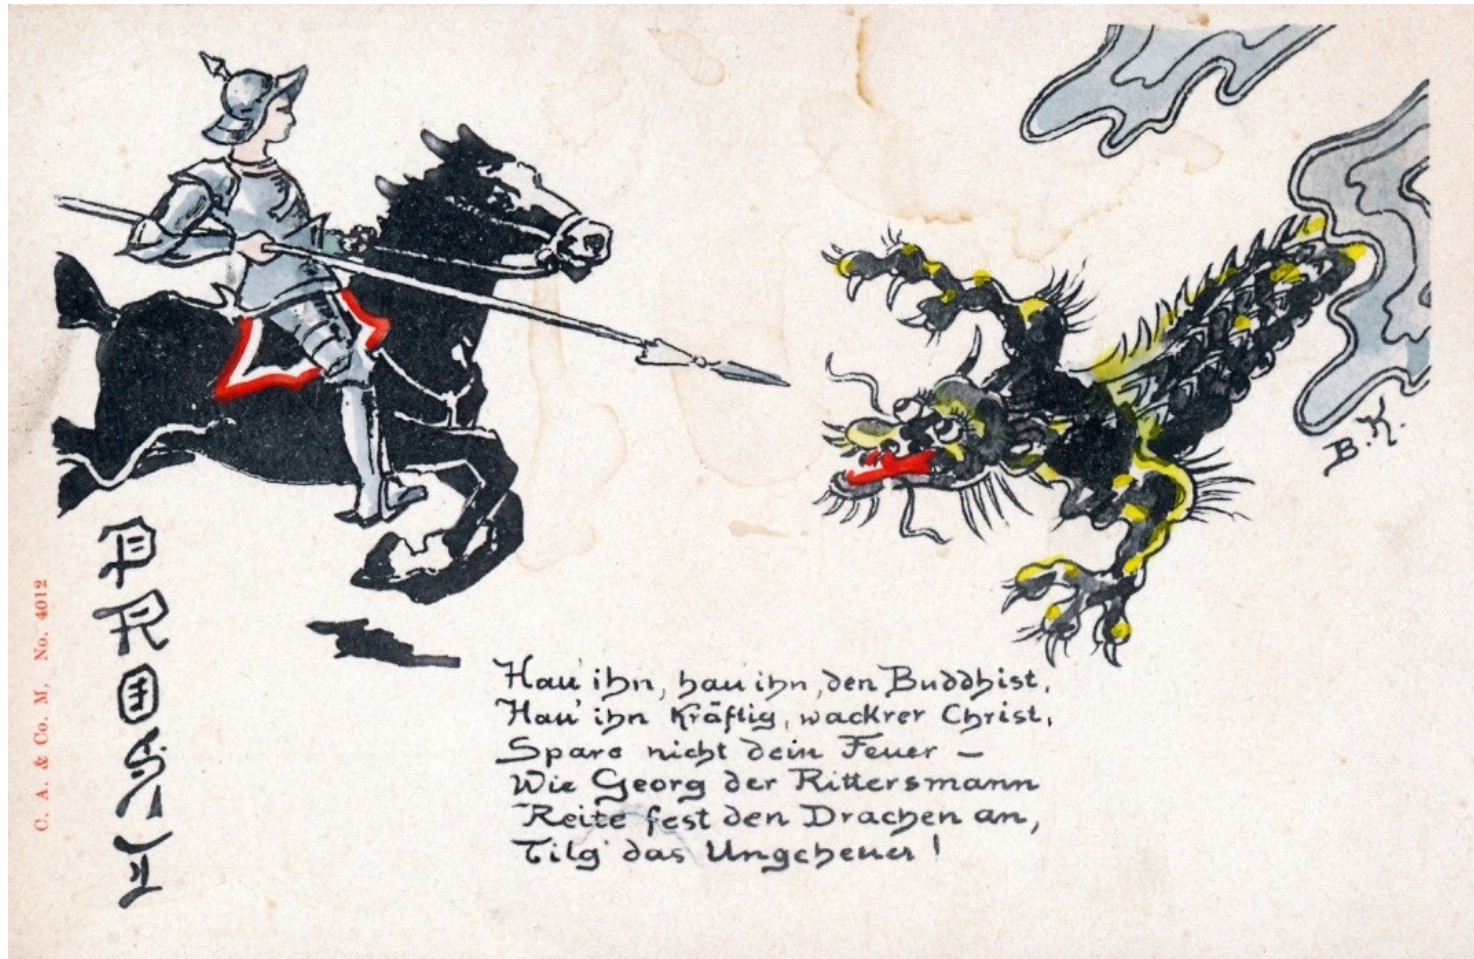 PROSIT
C. A. & Co. M, No. 4012
B. K.
Hau' ihn, hau ihn, den Buddhist,
Hau' ihn kräftig, wackrer Christ,
Spare nicht dein Feuer –
Wie Georg der Rittersmann
Reite fest den Drachen an,
Tilg' das Ungeheuer!